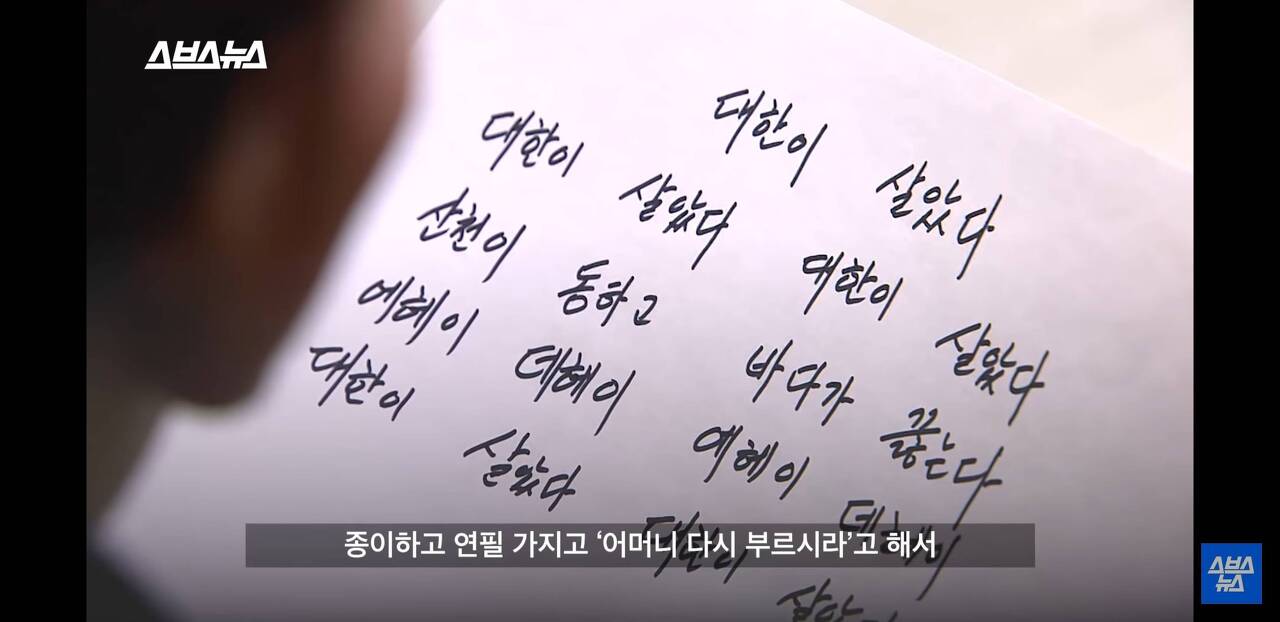 스브스뉴스
대한이 살았다
대한이 살았다 대한이 살았다
산천이 동하고 바다가 끓는다
에헤이 데헤이 에헤이 데헤이
대한이 살았다 대한이 살았다
종이하고 연필 가지고 ‘어머니 다시 부르시라’고 해서
스브스뉴스